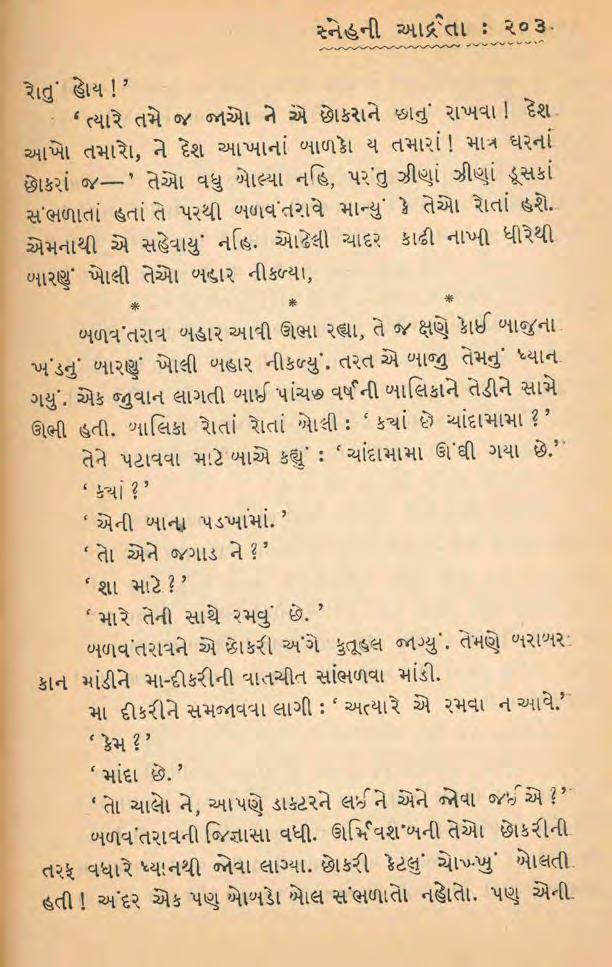 સ્નેહની આર્દ્રતા : ૨૦૩
રોતું હોય !’
‘ ત્યારે તમે જ જાઓ ને એ છોકરાને છાનું રાખવા ! દેશ
આખો તમારો, ને દેશ આખાનાં બાળકો ય તમારાં ! માત્ર ઘરનાં
છોકરાં જ—’ તેઓ વધુ બોલ્યા નહિ, પરંતુ ઝીણાં ઝીણાં ડૂસકાં
સંભળાતાં હતાં તે પરથી બળવંતરાવે માન્યું કે તેઓ રોતાં હશે.
એમનાથી એ સહેવાયું નહિ. ઓઢેલી ચાદર કાઢી નાખી ધીરેથી
બારણું ખોલી તેઓ બહાર નીકળ્યા,
* * *
બળવંતરાવ બહાર આવી ઊભા રહ્યા, તે જ ક્ષણે કોઈ બાજુના
ખંડનું બારણું ખોલી બહાર નીકળ્યું. તરત એ બાજી તેમનું ધ્યાન
ગયું. એક જુવાન લાગતી બાઈ પાંચછ વર્ષની બાલિકાને તેડીને સામે
ઊભી હતી. બાલિકા રોતાં રોતાં બોલી : ‘ કયાં છે ચાંદામામા ?’
તેને પટાવવા માટે બાએ કહ્યું : ‘ચાંદામામા ઊંઘી ગયા છે.’
‘ કયાં ?’
‘ એની બાના પડખાંમાં.’
‘ તો એને જગાડ ને ?’
‘ શા માટે ?’
‘ મારે તેની સાથે રમવું છે. ’
બળવંતરાવને એ છોકરી અંગે કુતૂહલ જાગ્યું. તેમણે બરાબર
કાન માંડીને મા-દીકરીની વાતચીત સાંભળવા માંડી.
મા દીકરીને સમજાવવા લાગી : ‘ અત્યારે એ રમવા ન આવે.’
‘ કેમ ?’
‘ માંદા છે.’
‘ તો ચાલો ને, આપણે ડાક્ટરને લઈને એને જોવા જઈએ ?’
બળવંતરાવની જિજ્ઞાસા વધી. ઊર્મિવશ બની તેઓ છોકરીની
તરફ વધારે ધ્યાનથી જોવા લાગ્યા. છોકરી કેટલું ચોખ્ખું બોલતી
હતી ! અંદર એક પણ બોબડો બોલ સંભળાતો નહોતો. પણ એની